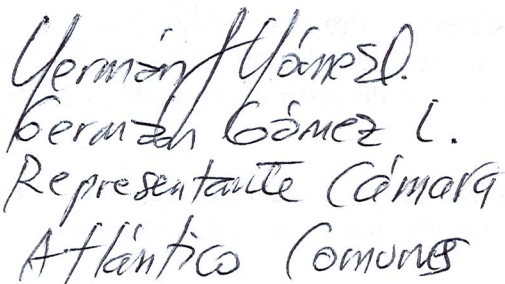 Germán Gómez L.
Germán Gómez L.
Representante Cámara
Atlántico Comunes